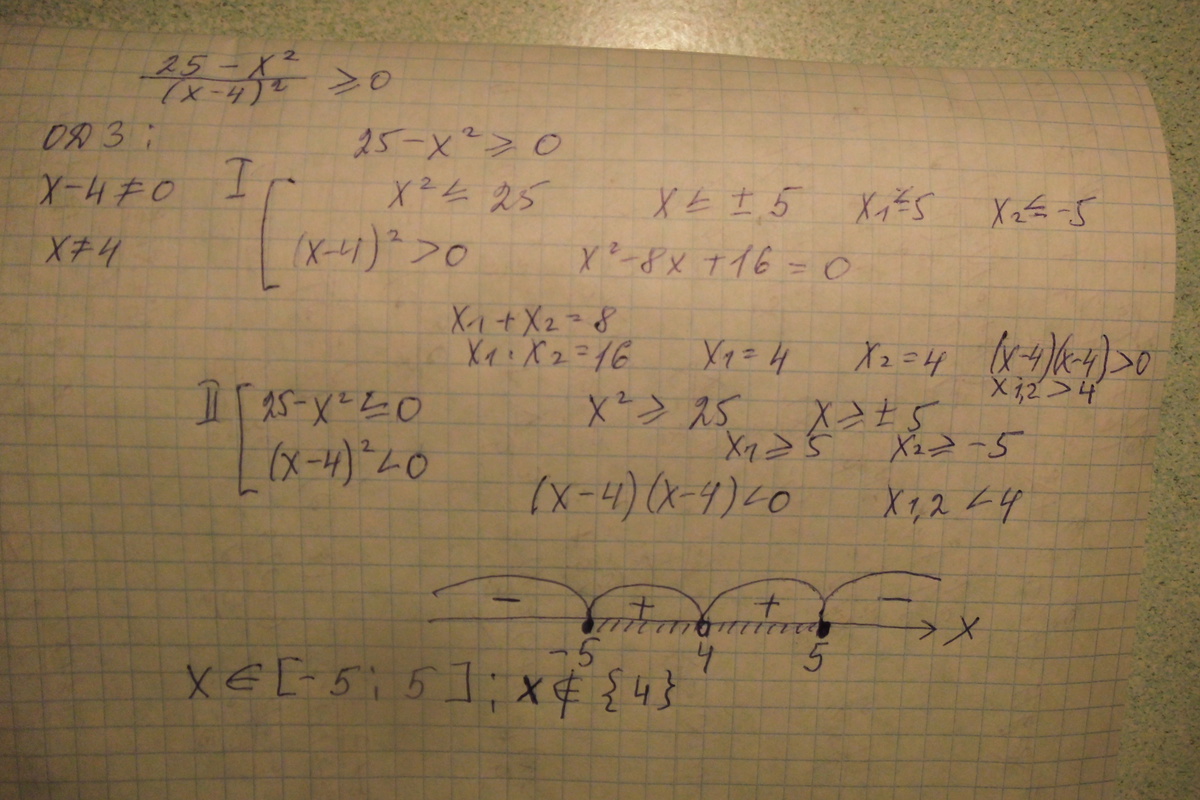 25 - x² / (x-4)² ≥ 0
ОДЗ: 25 - x² ≥ 0
x-4≠0 I [ x² ≤ 25 x ≤ ± 5 x₁ ≤ 5 x₂ ≤ -5
x≠4 (x-4)² > 0 x² - 8x + 16 = 0
x₁ + x₂ = 8
x₁ · x₂ = 16 x₁ = 4 x₂ = 4 (x-4)(x-4) > 0
x₁,₂ > 4
II [ 25 - x² ≤ 0 x² ≥ 25 x ≥ ± 5
x₁ ≥ 5 x₂ ≥ -5
(x-4)² < 0
(x-4)(x-4) < 0 x₁,₂ < 4
- + + -
x
-5 4 5
x ∈ [-5; 5]; x ∉ {4}